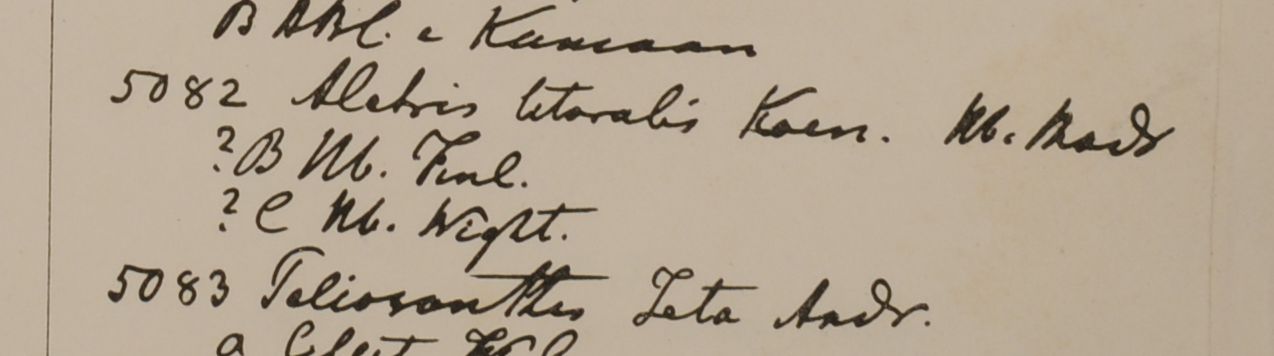 B HBC. e Kamaon
5082 Aletris litoralis Koen. Hb. Madr
? B Hb. Finl.
? C Hb. Wight.
5083 Peliosanthes Teta Andr.